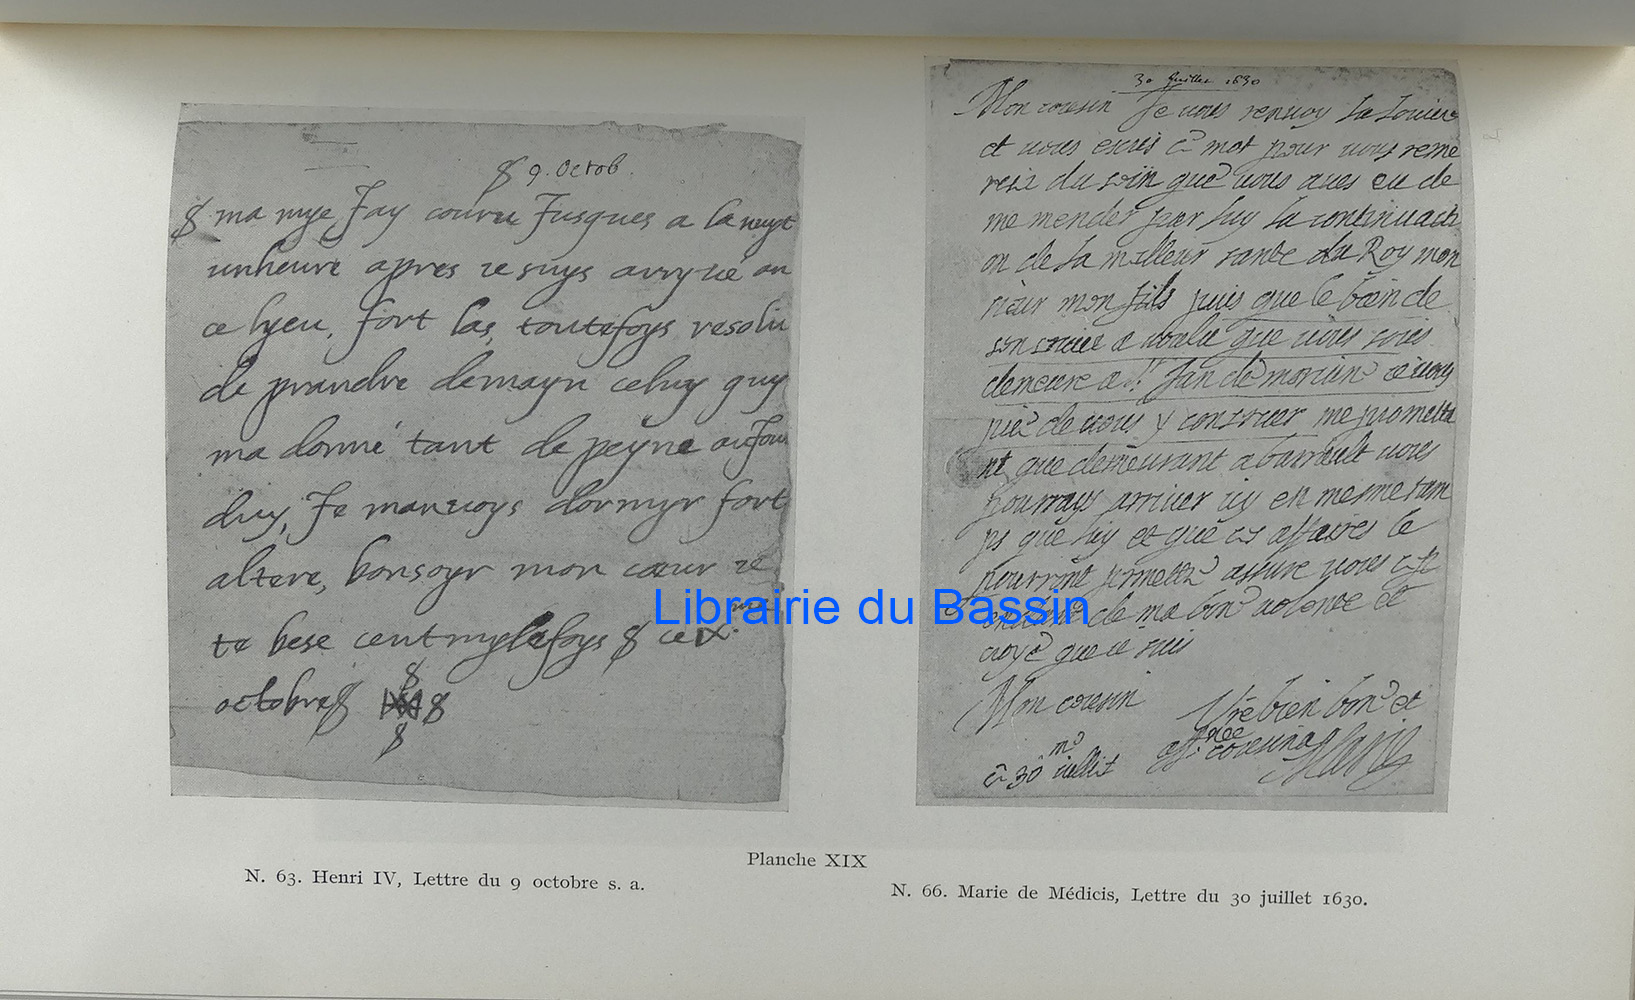 $ 9. Octob.
$ ma mye Jay couru Jusques a la nuyt
unheure apres je suys arryvé an
ce lyeu, fort las, toutefoys resolu
de prandre demayn celuy quy
ma donné tant de peyne aujour
duy, Je manvoys dormyr fort
altere, bonsoyr mon cœur je
te bese cent mylle foys $ ce ix.me
octobre $ $ $ $
30 Juillet 1630
Mon cousin Je vous renvoy
et vous escris ce mot pour vous reme
rsie du soin que vous aves eu de
me mender par luy la continuati
on de la meilleur sante du Roy mon
sieur mon fils puis que le bien de
son service a voulu que vous soies
demeure a St Jan de morienne je vous
prie de vous y conserver me prometta
nt que demeurant a barreault vous
pourrays arriver icy en mesme tam
ps que luy et que ces affaires le
pourront permettre assure vous cep
endant de ma bonne volonte et
croye que je suis
Mon cousin
Vre bien bonne et
affnee cousine Marie
ce 30me juillet
Librairie du Bassin
Planche XIX
N. 63. Henri IV, Lettre du 9 octobre s. a.
N. 66. Marie de Médicis, Lettre du 30 juillet 1630.